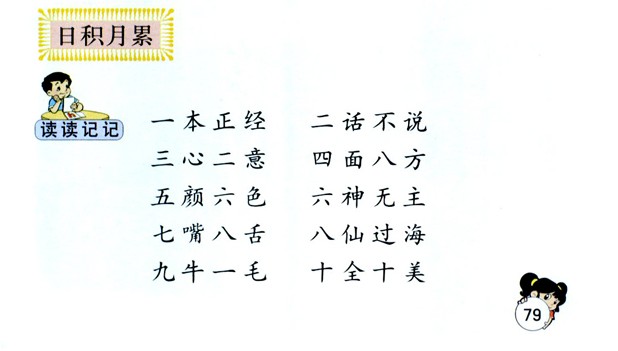 日积月累
读读记记
一本正经 二话不说
三心二意 四面八方
五颜六色 六神无主
七嘴八舌 八仙过海
九牛一毛 十全十美
79